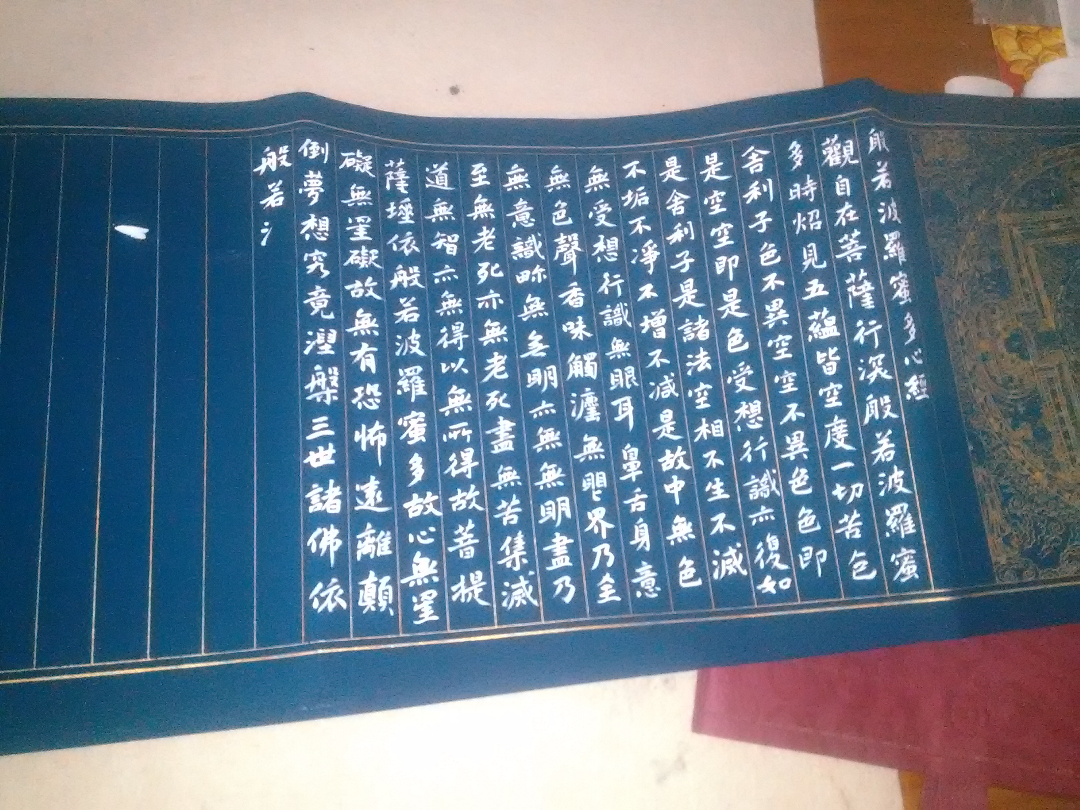 般若波羅蜜多心經
觀自在菩薩行深般若波羅蜜
多時炤見五蘊皆空度一切苦厄
舍利子色不異空空不異色色即
是空空即是色受想行識亦復如
是舍利子是諸法空相不生不滅
不垢不淨不增不減是故中無色
無受想行識無眼耳鼻舌身意
無色聲香味觸灋無眼界乃至
無意識畍無无明亦無無明盡乃
至無老死亦無老死盡無苦集滅
道無智亦無得以無所得故菩提
薩埵依般若波羅蜜多故心無罣
礙無罣礙故無有恐怖遠離顛
倒夢想究竟涅槃三世諸佛依
般若